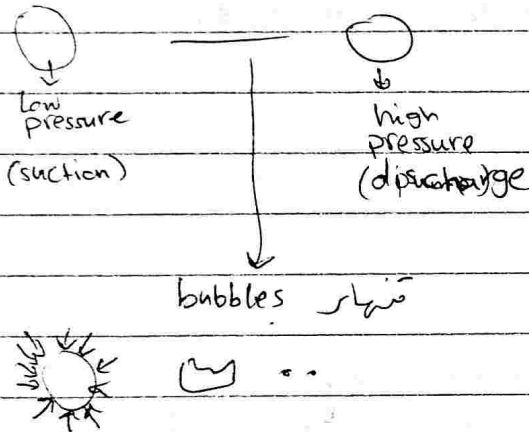 Low
pressure
(suction)
high
pressure
(discharge)
bubbles تنهار